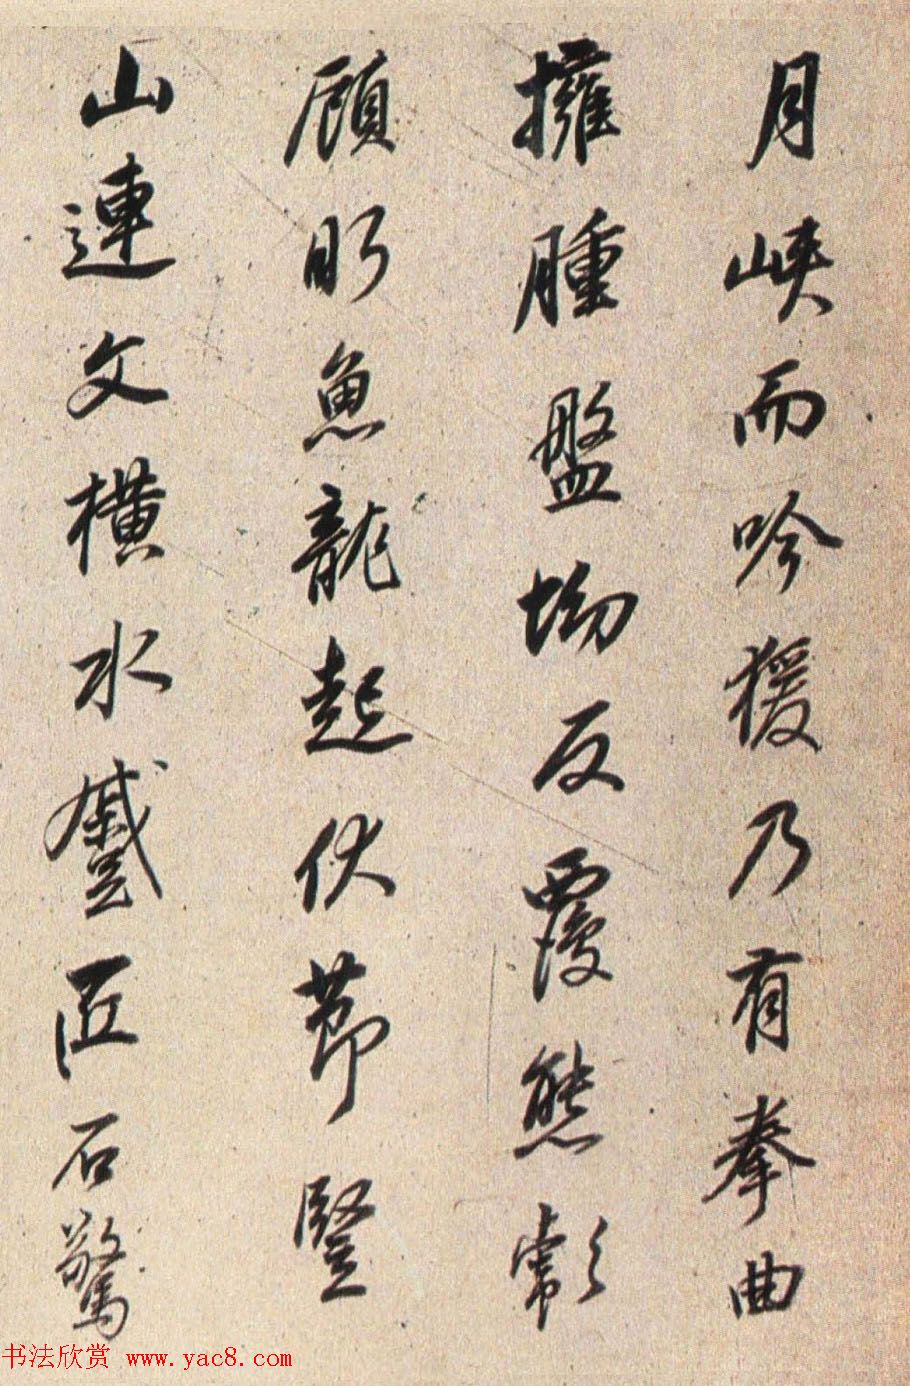 月峽而吟猨乃有拳曲
擁腫盤坳反覆熊彪
顧盼魚龍起伏節豎
山連文橫水蹙匠石驚
书法欣赏 www.yac8.com